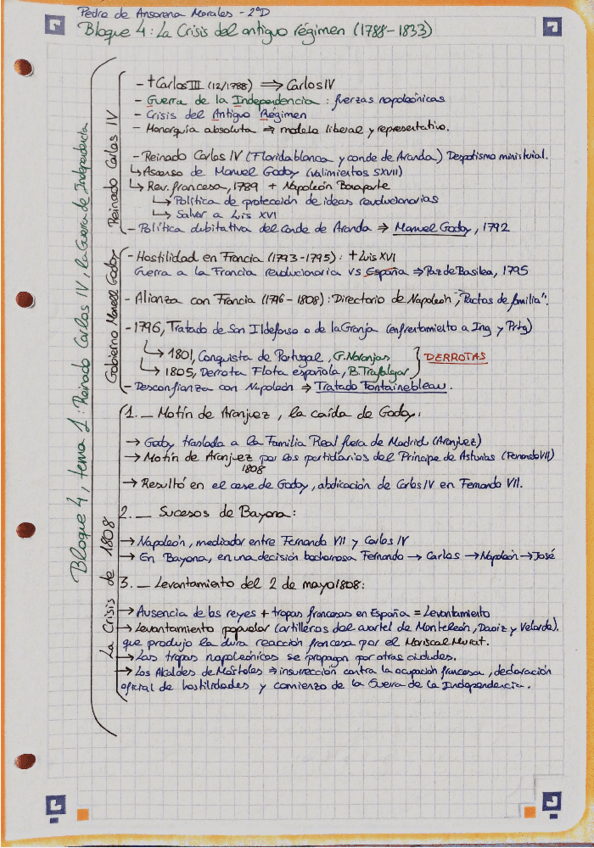 Pedro de Ansorena Morales - 2ºD
Bloque 4: La Crisis del antiguo régimen (1788-1833)
Bloque 4, tema 1: Reinado Carlos IV, la Guerra de Independencia
Reinado Carlos IV
- † Carlos III (12/1788) ⇒ Carlos IV
- Guerra de la Independencia: fuerzas napoleónicas
- Crisis del Antiguo Régimen
- Monarquía absoluta ⇒ modelo liberal y representativo.
- Reinado Carlos IV (Floridablanca y conde de Aranda) Despotismo ministerial.
↳ Ascenso de Manuel Godoy (Valimientos SXVII)
↳ Rev. francesa, 1789 + Napoleón Bonaparte
↳ Política de protección de ideas revolucionarias
↳ Salvar a Luis XVI
- Política dubitativa del Conde de Aranda ⇒ Manuel Godoy, 1792
Gobierno Manuel Godoy
- Hostilidad en Francia (1793-1795): † Luis XVI
Guerra a la Francia revolucionaria vs España ⇒ Paz de Basilea, 1795
- Alianza con Francia (1796-1808): Directorio de Napoleón, "Pactos de familia".
- 1796, Tratado de San Ildefonso o de la Granja (enfrentamiento a Ing y Prtg)
↳ 1801, Conquista de Portugal, G. Naranjas
↳ 1805, Derrota Flota española, B. Trafalgar
DERROTAS
- Desconfianza con Napoleón ⇒ Tratado Fontainebleau.
La Crisis de 1808
1. _ Motín de Aranjuez, la caída de Godoy:
→ Godoy traslada a la Familia Real fuera de Madrid (Aranjuez)
→ Motín de Aranjuez por los partidarios del Príncipe de Asturias (Fernando VII)
1808
→ Resultó en el cese de Godoy, abdicación de Carlos IV en Fernando VII.
2. _ Sucesos de Bayona:
→ Napoleón, mediador entre Fernando VII y Carlos IV
→ En Bayona, en una decisión bochornosa Fernando → Carlos → Napoleón → José
3. _ Levantamiento del 2 de mayo 1808:
→ Ausencia de los reyes + tropas francesas en España = Levantamiento
→ Levantamiento popular (artilleros del cuartel de Monteleón, Daoiz y Velarde).
que produjo la dura reacción francesa por el Mariscal Murat.
→ Las tropas napoleónicas se propagan por otras ciudades.
→ Los Alcaldes de Móstoles ⇒ insurrección contra la ocupación francesa, declaración
oficial de hostilidades y comienzo de la Guerra de la Independencia.